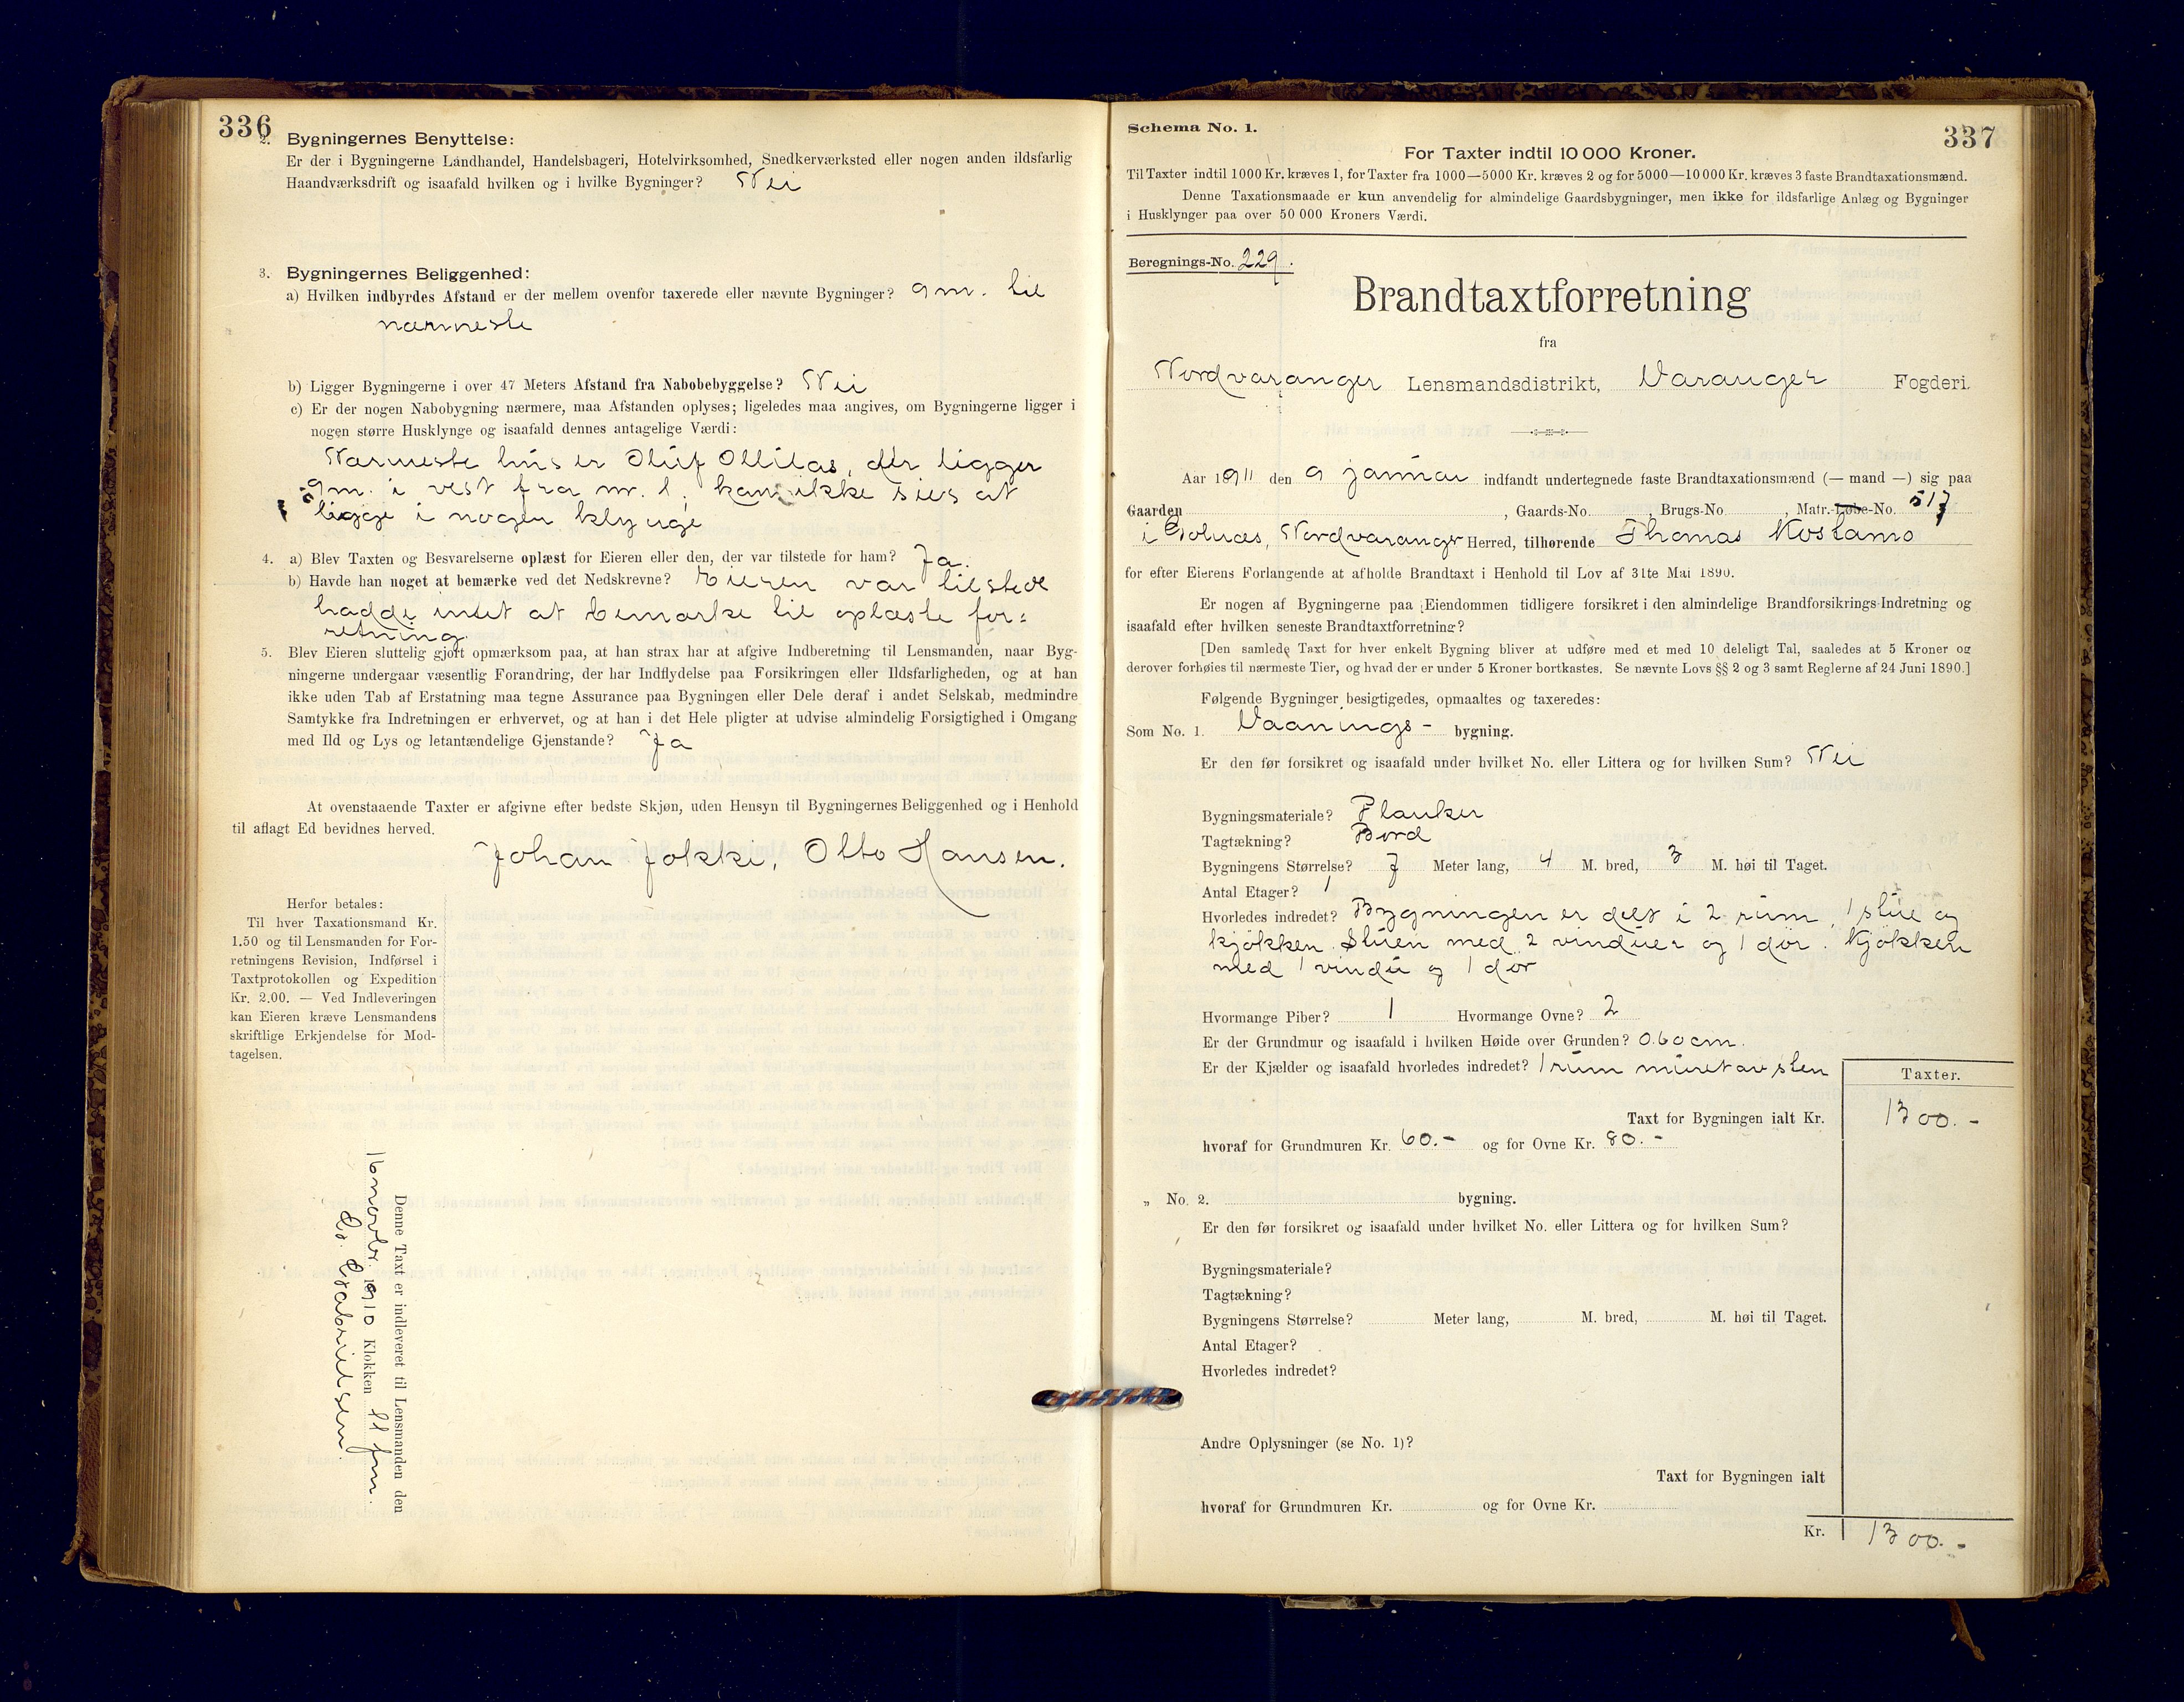 336
2. Bygningernes Benyttelse:
Er der i Bygningerne Landhandel, Handelsbageri, Hotelvirksomhed, Snedkerværksted eller nogen anden ildsfarlig
Haandværksdrift og isaafald hvilken og i hvilke Bygninger? Nei
3. Bygningernes Beliggenhed:
a) Hvilken indbyrdes Afstand er der mellem ovenfor taxerede eller nævnte Bygninger? 9 m. til
nærmeste
b) Ligger Bygningerne i over 47 Meters Afstand fra Nabobebyggelse? Nei
c) Er der nogen Nabobygning nærmere, maa Afstanden oplyses; ligeledes maa angives, om Bygningerne ligger i
nogen større Husklynge og isaafald dennes antagelige Værdi:
Nærmeste hus er Oluf Ollilas, der ligger
9 m. i vest fra nr. 1. kan ikke sies at
ligge i nogen klynge
4. a) Blev Taxten og Besvarelserne oplæst for Eieren eller den, der var tilstede for ham? Ja.
b) Havde han noget at bemærke ved det Nedskrevne? Eieren var tilstede
hadde intet at bemærke til oplæste for-
retning.
5. Blev Eieren sluttelig gjort opmærksom paa, at han strax har at afgive Indberetning til Lensmanden, naar Byg-
ningerne undergaar væsentlig Forandring, der har Indflydelse paa Forsikringen eller Ildsfarligheden, og at han
ikke uden Tab af Erstatning maa tegne Assurance paa Bygningen eller Dele deraf i andet Selskab, medmindre
Samtykke fra Indretningen er erhvervet, og at han i det Hele pligter at udvise almindelig Forsigtighed i Omgang
med Ild og Lys og letantændelige Gjenstande? Ja
At ovenstaaende Taxter er afgivne efter bedste Skjøn, uden Hensyn til Bygningernes Beliggenhed og i Henhold
til aflagt Ed bevidnes herved.
Johan Jokki, Otto Hansen.
Herfor betales:
Til hver Taxationsmand Kr.
1.50 og til Lensmanden for For-
retningens Revision, Indførsel i
Taxtprotokollen og Expedition
Kr. 2.00. — Ved Indleveringen
kan Eieren kræve Lensmandens
skriftlige Erkjendelse for Mod-
tagelsen.
Denne Taxt er indleveret til Lensmanden den
16 novbr. 1910 Klokken 11 fm.
Gabrielsen
337
Schema No. 1.
For Taxter indtil 10 000 Kroner.
Til Taxter indtil 1000 Kr. kræves 1, for Taxter fra 1000—5000 Kr. kræves 2 og for 5000—10 000 Kr. kræves 3 faste Brandtaxationsmænd.
Denne Taxationsmaade er kun anvendelig for almindelige Gaardsbygninger, men ikke for ildsfarlige Anlæg og Bygninger
i Husklynger paa over 50 000 Kroners Værdi.
Beregnings-No. 229.
Brandtaxtforretning
fra
Nordvaranger Lensmandsdistrikt, Varanger Fogderi.
Aar 1911 den 9 januar indfandt undertegnede faste Brandtaxationsmænd (— mand —) sig paa
Gaarden , Gaards-No. , Brugs-No. , Matr.-Løbe-No. 517
i Golnes, Nordvaranger Herred, tilhørende Thomas Kostamo
for efter Eierens Forlangende at afholde Brandtaxt i Henhold til Lov af 31te Mai 1890.
Er nogen af Bygningerne paa Eiendommen tidligere forsikret i den almindelige Brandforsikrings-Indretning og
isaafald efter hvilken seneste Brandtaxtforretning?
[Den samlede Taxt for hver enkelt Bygning bliver at udføre med et med 10 deleligt Tal, saaledes at 5 Kroner og
derover forhøies til nærmeste Tier, og hvad der er under 5 Kroner bortkastes. Se nævnte Lovs §§ 2 og 3 samt Reglerne af 24 Juni 1890.]
Følgende Bygninger besigtigedes, opmaaltes og taxeredes:
Som No. 1. Vaanings- bygning.
Er den før forsikret og isaafald under hvilket No. eller Littera og for hvilken Sum? Nei
Bygningsmateriale? Planker
Tagtækning? Bord
Bygningens Størrelse? 7 Meter lang, 4 M. bred, 3 M. høi til Taget.
Antal Etager? 1
Hvorledes indredet? Bygningen er delt i 2 rum, 1 stue og
kjøkken. Stuen med 2 vinduer og 1 dør. Kjøkken
med 1 vindu og 1 dør
Hvormange Piber? 1 Hvormange Ovne? 2
Er der Grundmur og isaafald i hvilken Høide over Grunden? 0.60 cm.
Er der Kjælder og isaafald hvorledes indredet? 1 rum muret av sten
Taxter.
Taxt for Bygningen ialt Kr. 1300.-
hvoraf for Grundmuren Kr. 60.- og for Ovne Kr. 80.-
„ No. 2. bygning.
Er den før forsikret og isaafald under hvilket No. eller Littera og for hvilken Sum?
Bygningsmateriale?
Tagtækning?
Bygningens Størrelse? Meter lang, M. bred, M. høi til Taget.
Antal Etager?
Hvorledes indredet?
Andre Oplysninger (se No. 1)?
Taxt for Bygningen ialt
hvoraf for Grundmuren Kr. og for Ovne Kr.
Kr. 1300.-